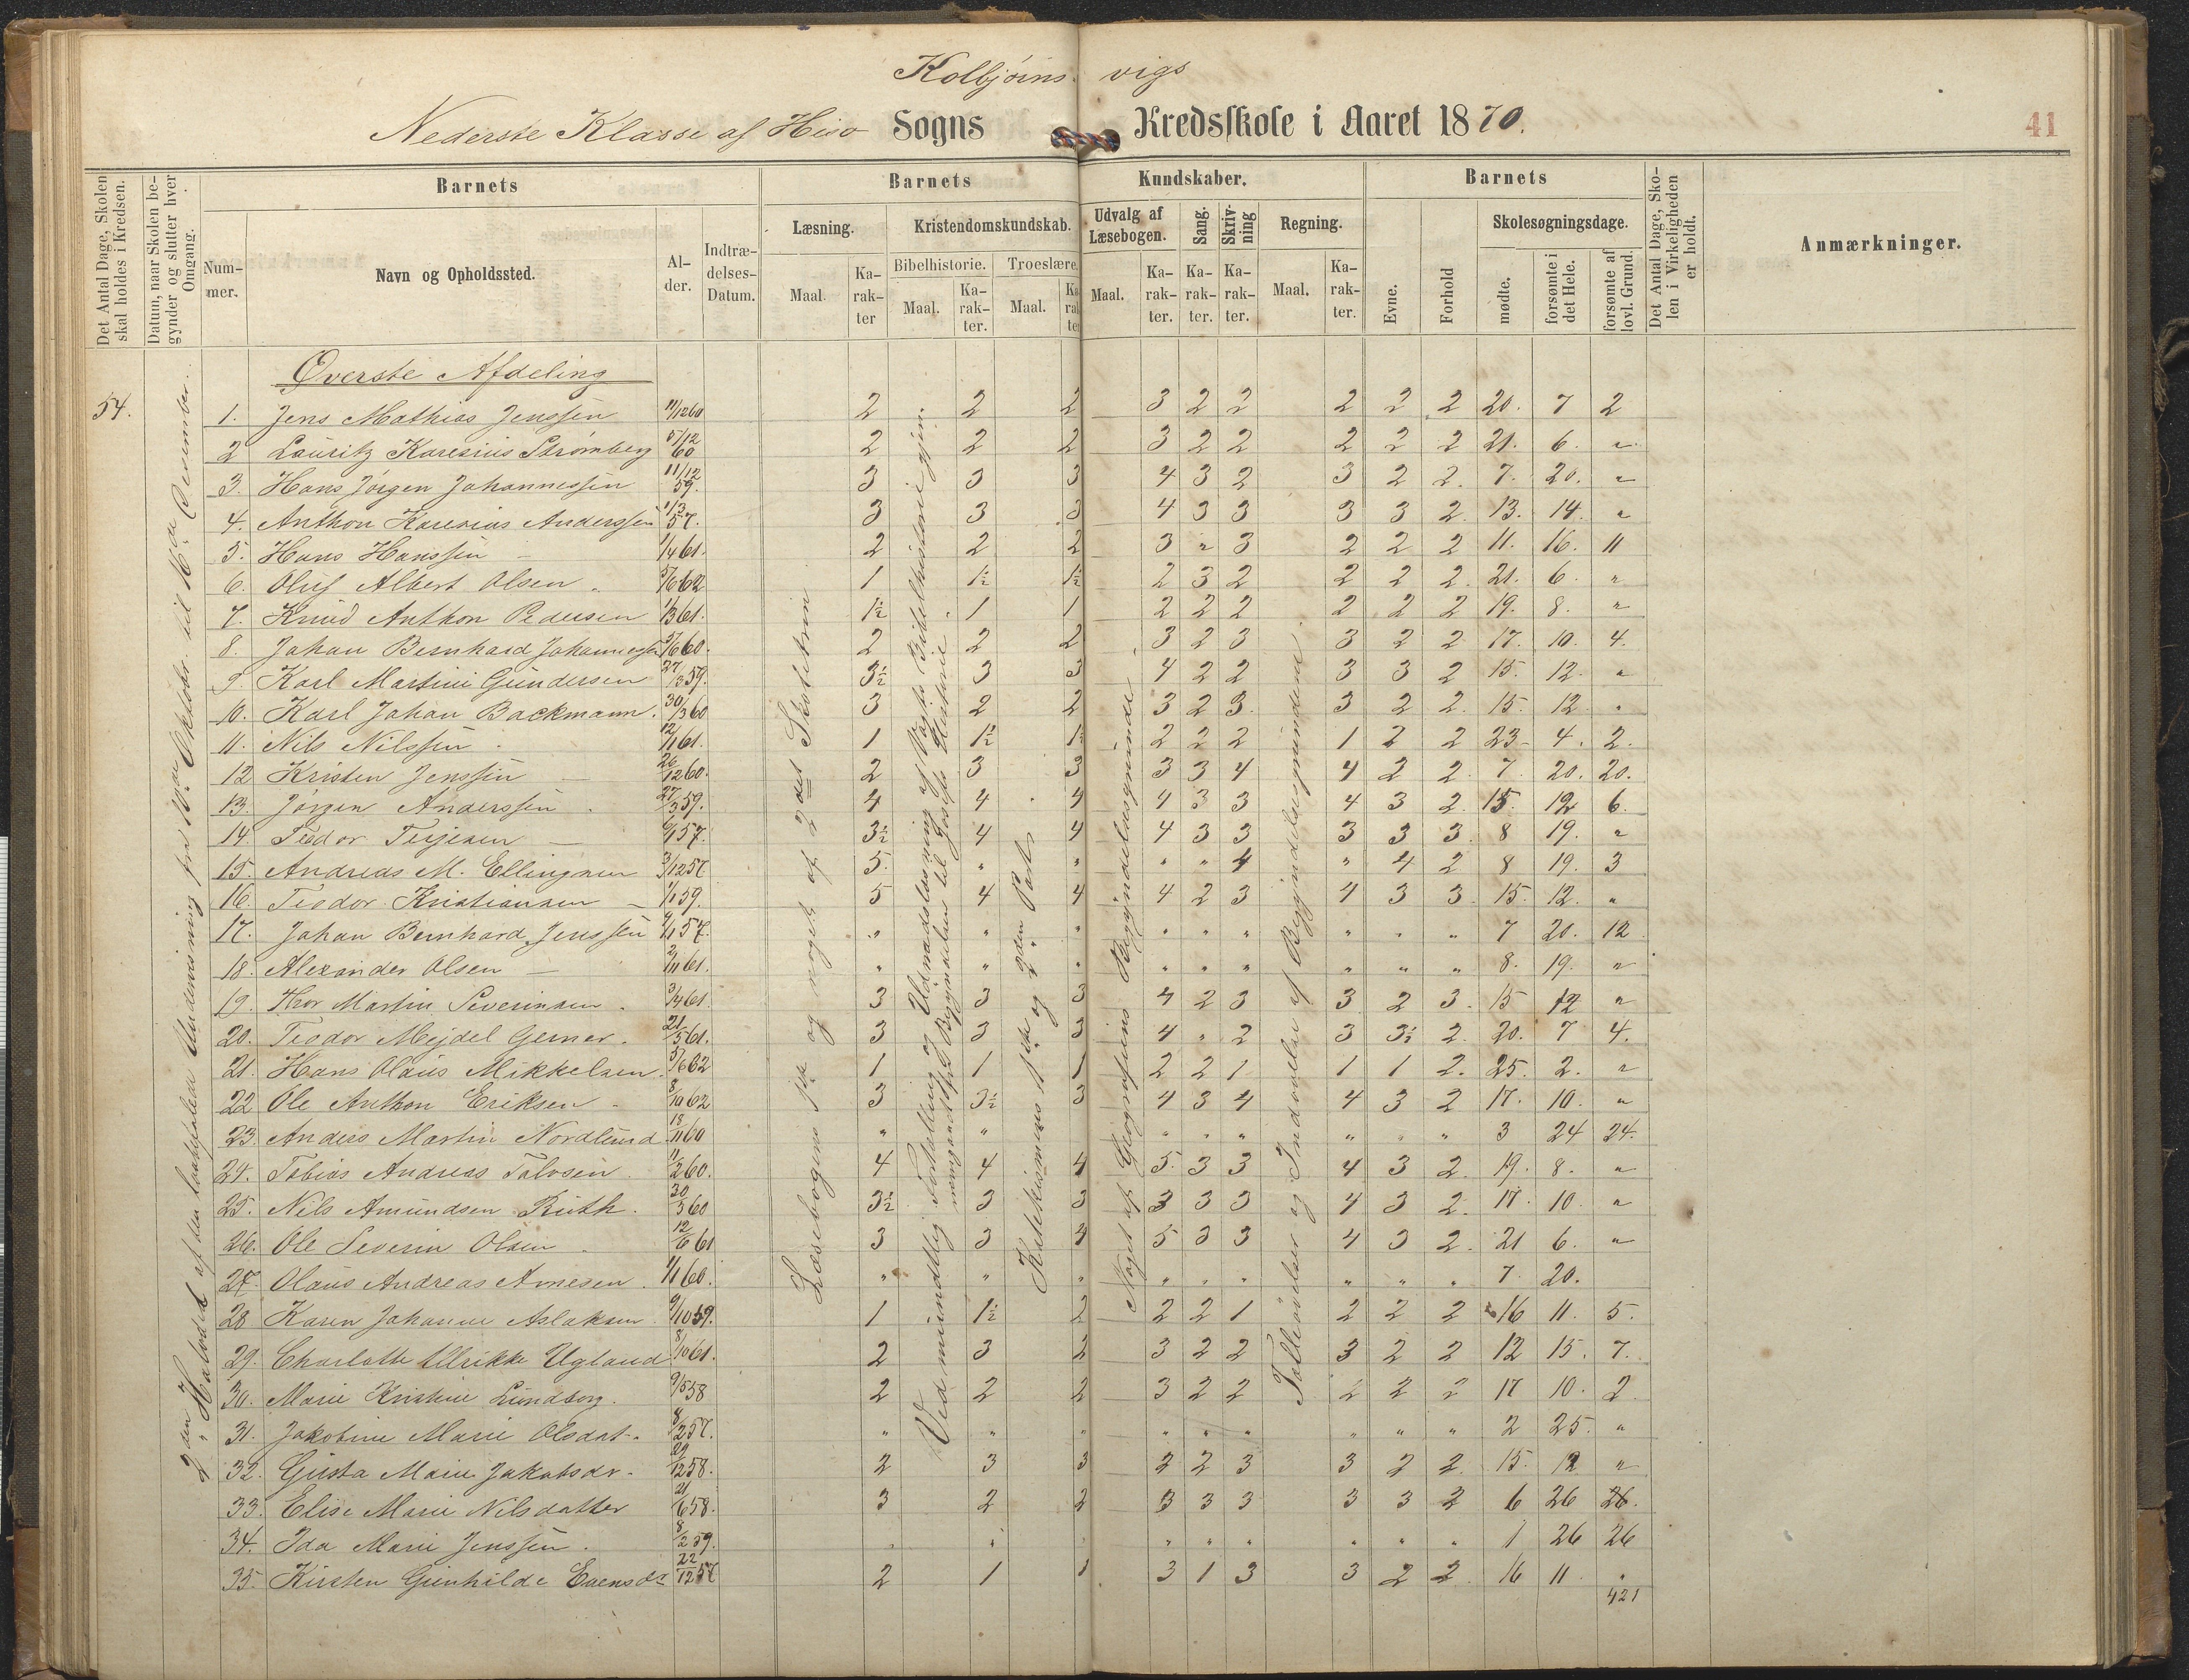 Kolbjøins vigs
Nederste Klasse af Hisø Sogns Kredsskole i Aaret 1870.
41
Det Antal Dage, Skolen skal holdes i Kredsen.
Datum, naar Skolen begynder og slutter hver Omgang.
Barnets
Nummer.
Navn og Opholdssted.
Alder.
Indtrædelses-Datum.
Barnets Kundskaber.
Læsning.
Maal.
Karakter
Kristendomskundskab.
Bibelhistorie.
Maal.
Karakter.
Troeslære.
Maal.
Karakter
Udvalg af Læsebogen.
Maal.
Karakter.
Sang.
Karakter.
Skrivning
Karakter.
Regning.
Maal.
Karakter.
Barnets
Evne.
Forhold
Skolesøgningsdage.
mødte.
forsømte i det Hele.
forsømte af lovl. Grund.
Det Antal Dage, Skolen i Virkeligheden er holdt.
Anmærkninger.
54.
2den Halvdel af den lovbefalede Undervisning fra 10de Oktober til 16de December.
Læsebogens 1ste og noget af 2det Skoletrin
Ved mundtlig Fortælling og Udenadslæsning af Vogts Bibelhistorie gjen-
nemgaaet fra Begyndelsen til Josefs Historie.
Katekismens 1ste og 2den Part
Noget af Geografiens Begyndelsesgrunde.
Talleøvelser og Indøvelse af Begyndelsesgrundene.
Øverste Afdeling
1. Jens Mathias Jenssen 11/12 60 2 2 2 3 2 2 2 2 2 20. 7 2
2 Lauritz Karesius Strømberg 5/12 60 2 2 2 3 2 2 2 2 2 21. 6. "
3. Hans Jørgen Johannessen 11/12 59. 3 3 3 4 3 2 3 2 2. 7. 20. "
4. Anthon Karesius Anderssen 1/3 57. 3 3 3 4 3 3 3 3 2. 13. 14. "
5. Hans Hanssen 1/4 61. 2 2 2 3 " 3 2 2 2 11. 16. 11
6. Oluf Albert Olsen 5/6 62 1 1½ 1½ 2 3 2 2 2 2. 21. 6. "
7. Knud Anthon Pedersen 1/3 61. 1½ 1 1 2 2 2 2 2 2 19. 8. "
8. Johan Bernhard Johannessen 5/6 60. 2 2 2 3 2 3 3 2 2 17. 10. 4.
9. Karl Martini Gundersen 27/3 59. 3½ 3 3 4 2 2 3 3 2 15. 12. "
10. Karl Johan Backmann. 30/3 60 3 2 2 3 2 3. 3 2 2. 15. 12. "
11. Nils Nilssen 12/11 61. 1 1½ 1½ 2 2 2 1 2 2 23. 4. 2.
12 Kristen Jenssen 26/12 60. 2 3 3 3 3 4 4 2 2. 7. 20. 20.
13. Jørgen Anderssen 27/3 59. 4 4 4 4 3 3 4 3 2. 15. 12 6.
14. Teodor Terjesen 6/1 57. 3½ 4 4 4 3 3 3 3 3. 8 19. "
15. Andreas M. Ellingsen 3/12 57 5. " " " " 4 " 4 2 8 19. 3
16. Teodor Kristiansen 1/1 59. 5 4 4 4 2 3 4 3 3. 15. 12. "
17. Johan Bernhard Jenssen 4/1 57. " " " " " " " " " 7 20. 12
18. Alexander Olsen 2/11 61. " " " " " " " " " 8. 19. "
19. Thor Martin Severinsen 3/4 61. 3 3 3 4 2 3 3 2 3. 15 12 "
20. Teodor Mejdel Gerner. 21/5 61. 3 3 3 4 " 2 3 3½ 2. 20. 7 4.
21. Hans Olaus Mikkelsen. 5/6 62 1 1 1 2 2 1 1 1 2. 25. 2. "
22 Ole Anthon Eriksen 8/10 62 3 3½ 3 4 3 4 4 3 2 17. 10. "
23. Anders Martin Nordlund 18/11 60 " " " " " " " " 3 24 24.
24. Tobias Andreas Talvsen 11/2 60. 4 4 4 5. 3 3 4 3 2. 19. 8. "
25. Nils Amundsen Ruth. 30/3 60 3½ 3 3 3 3 3 4 3 2. 17. 10. "
26. Ole Severin Olsen 12/6 61 3 3 4 5 3 3 4 3 2. 21 6. "
27. Olaus Andreas Arnesen 1/1 60. " " " " " " " " " 7. 20.
28 Karen Johanne Aslaksen 9/10 59. 1 1½ 2 2 2 1 2 2 2 16 11. 5.
29. Charlotte Ulrikke Ugland 8/10 61. 2 3 2 3 2 2 3 2 2 12 15. 7.
30. Marie Kristine Lundborg. 9/5 58 2 2 2 3 2 2 2 2 2 17 10. 2.
31. Jakobine Marie Olsdat. 8/2 57. " " " " " " " " " 2 25. "
32. Gusta Marie Jakobsdr. 29/12 58. 2 3 3 2 2 3 3 2 2. 15. 12 "
33. Elise Marie Nilsdatter 21/6 58. 3 2 2 3 3 3 3 3 2 6 26 26.
34. Ida Marie Jenssen. 8/2 59. " " " " " " " " " 1 26 26
35. Kirsten Gunhilde Evensdr 22/12 57 2 1 1 3 1 3 3 2 2. 16 11. "
421